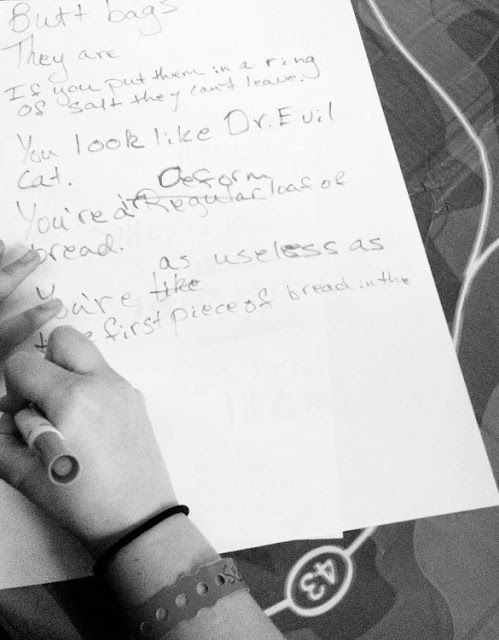 Butt bags
They are
If you put them in a ring
of salt they cant leave.
You look like Dr. Evil
cat.
Deform
You're a Regular loaf of
bread.
as useless as
You're like
the first piece of bread in the
43